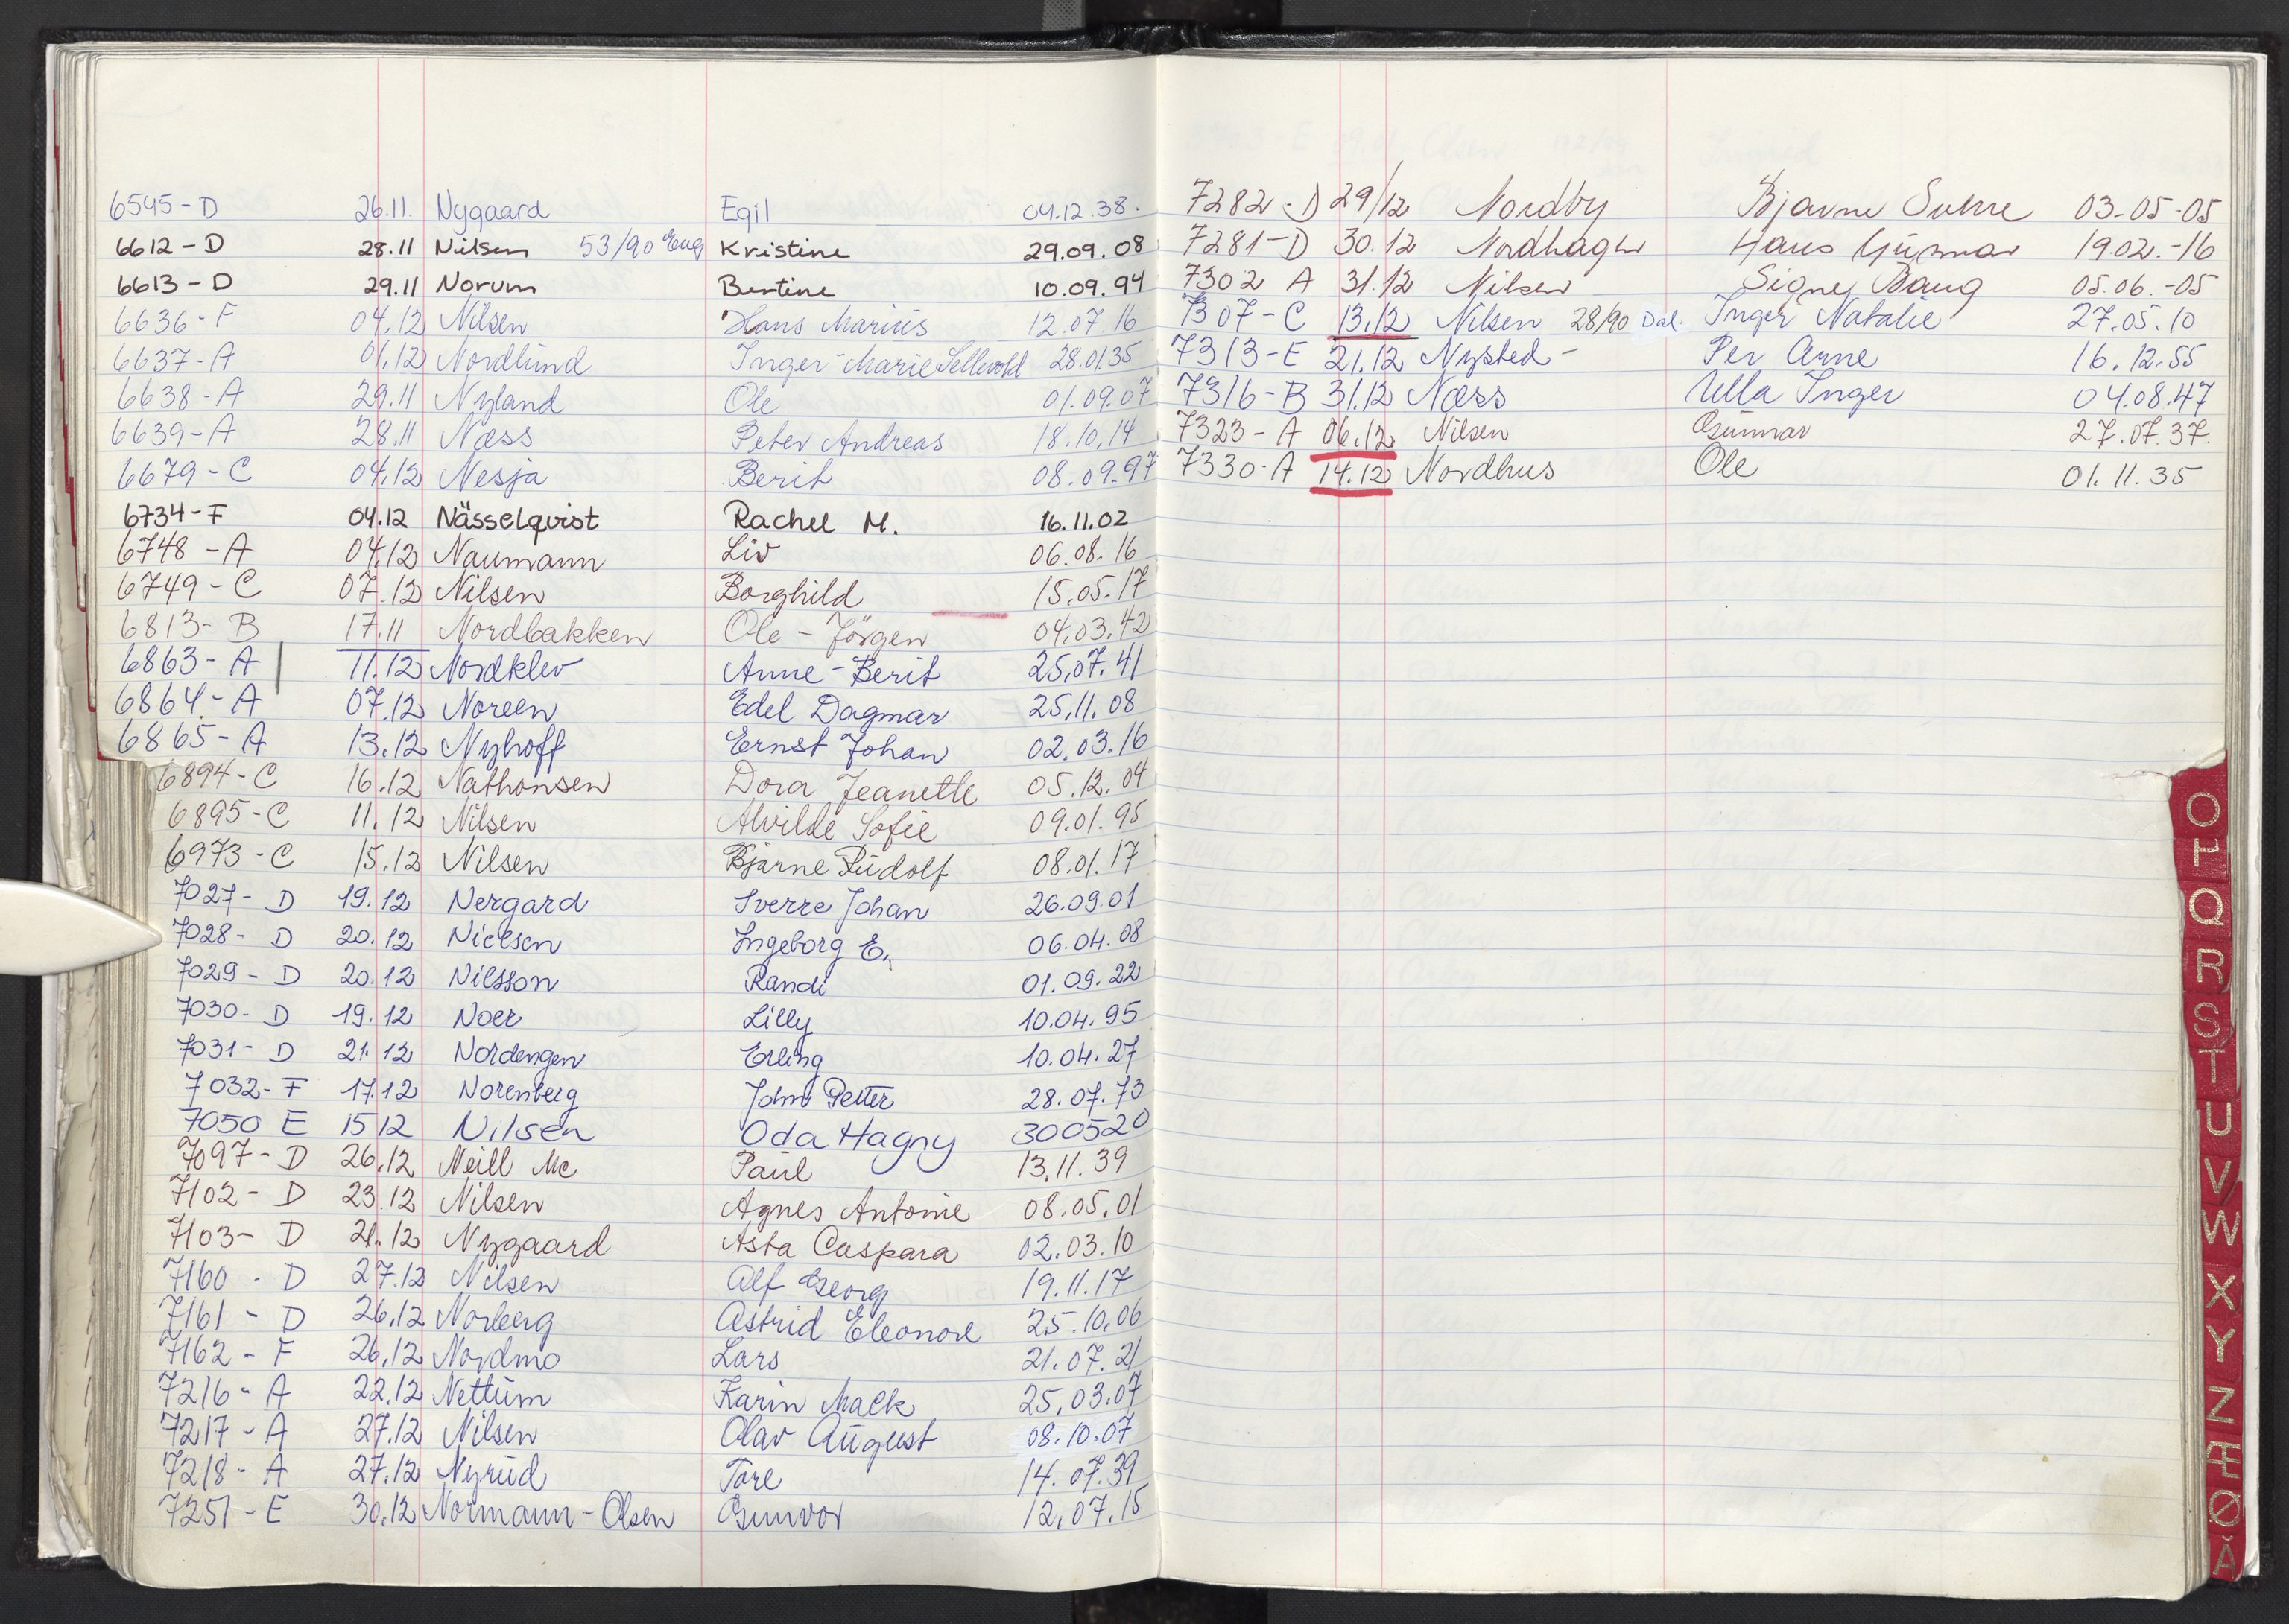 6545-D 26.11. Nygaard Egil 04.12.38.
6612-D 28.11 Nilsen 53/90 Eug Kristine 29.09.08
6613-D 29.11 Norum Bertine 10.09.94
6636-F 04.12 Nilsen Hans Marius 12.07.16
6637-A 01.12 Nordlund Inger-Marie Sellevold 28.01.35
6638-A 29.11 Nyland Ole 01.09.07
6639-A 28.11 Næss Peter Andreas 18.10.14
6679-C 04.12 Nesja Berit 08.09.97
6734-F 04.12 Nässelqvist Rachel M. 16.11.02
6748-A 04.12 Naumann Liv 06.08.16
6749-C 07.12 Nilsen Borghild 15.05.17
6813-B 17.11 Nordbakken Ole-Jörgen 04.03.42
6863-A 11.12 Nordklev Anne-Berit 25.07.41
6864-A 07.12 Noreen Edel Dagmar 25.11.08
6865-A 13.12 Nyhoff Ernst Johan 02.03.16
6894-C 16.12 Nathonsen Dora Jeanette 05.12.04
6895-C 11.12 Nilsen Alvilde Sofie 09.01.95
6973-C 15.12 Nilsen Bjarne Rudolf 08.01.17
7027-D 19.12 Nergard Sverre Johan 26.09.01
7028-D 20.12 Nielsen Ingeborg E. 06.04.08
7029-D 20.12 Nilsson Randi 01.09.22
7030-D 19.12 Noer Lilly 10.04.95
7031-D 21.12 Nordengen Erling 10.04.27
7032-F 17.12 Norenberg John Petter 28.07.73
7050 E 15 12 Nilsen Oda Hagny 300520
7097-D 26.12 Neill Mc Paul 13.11.39
7102-D 23.12 Nilsen Agnes Antonie 08.05.01
7103-D 21.12 Nygaard Asta Caspara 02.03.10
7160-D 27.12 Nilsen Alf Georg 19.11.17
7161-D 26.12 Norberg Astrid Eleonore 25.10.06
7162-F 26.12 Nordmo Lars 21.07.21
7216-A 22.12 Nettum Karin Malk 25.03.07
7217-A 27.12 Nilsen Olav August 08.10.07
7218-A 27.12 Nyrud Tore 14.07.39
7251-E 30.12 Normann-Olsen Gunvor 12.07.15
7282-D 29/12 Nordby Bjarne Sverre 03-05-05
7281-D 30.12 Nordhagen Hans Gunnar 19.02.-16
7302 A 31.12 Nilsen Signy Baug 05.06.-05
7307-C 13.12 Nilsen 28/90 Dal. Inger Natalie 27.05.10
7313-E 21.12 Nysted- Per Arne 16.12.55
7316-B 31.12 Næss Ulla Inger 04.08.47
7323-A 06.12 Nilsen Gunnar 27.07.37.
7330-A 14.12 Nordhus Ole 01.11.35
O
P
Q
R
S
T
U
V
W
X
Y
Z
Æ
Ø
Å